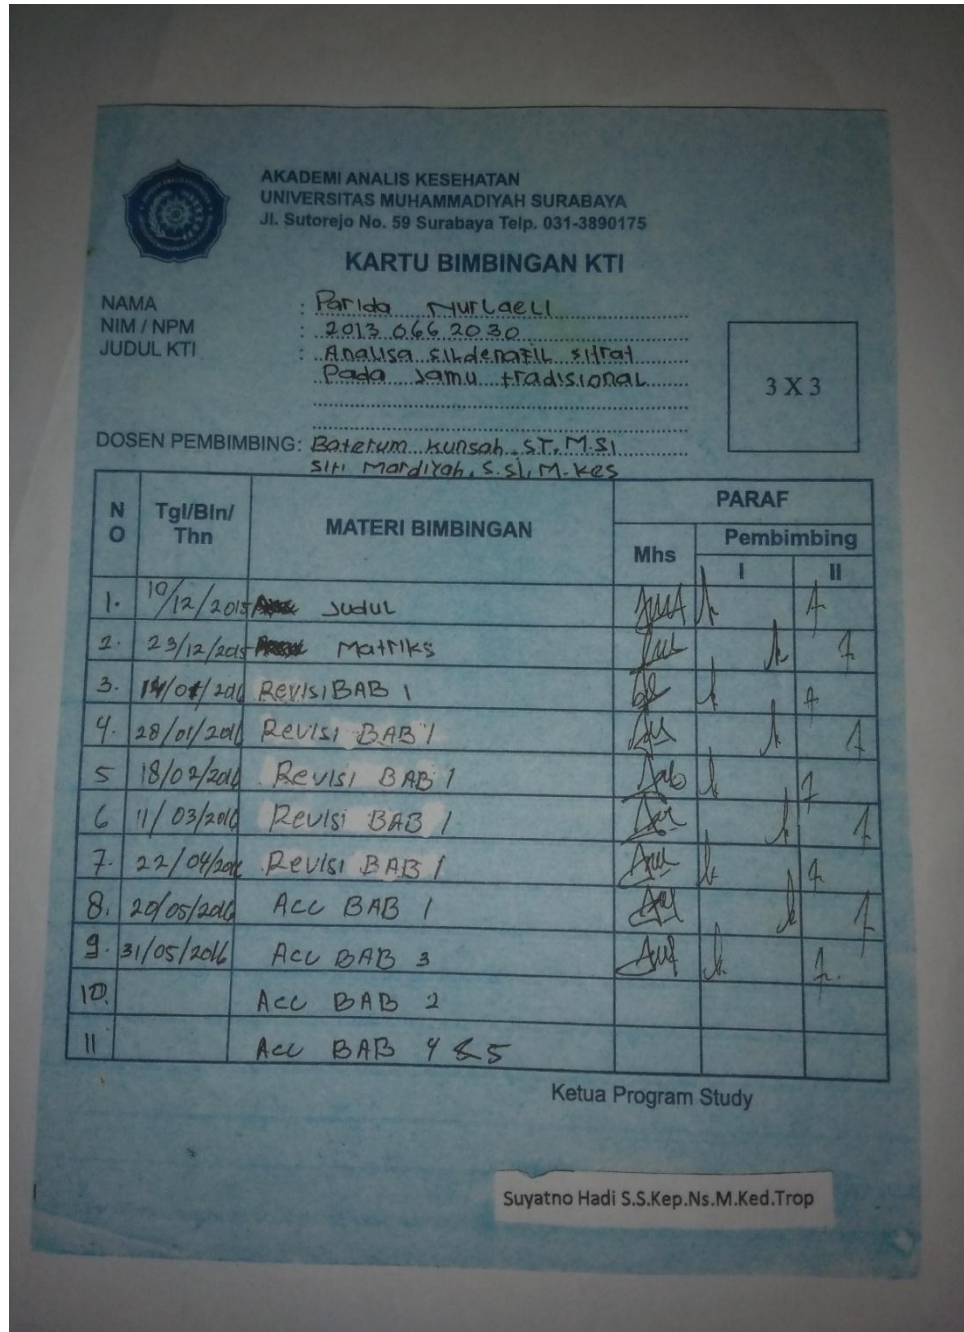 AKADEMI ANALIS KESEHATAN
UNIVERSITAS MUHAMMADIYAH SURABAYA
Jl. Sutorejo No. 59 Surabaya Telp. 031-3890175
KARTU BIMBINGAN KTI
NAMA : Parida Nurlaeli
NIM / NPM : 2013 066 2030
JUDUL KTI : Analisa sildenafil sitrat
Pada Jamu tradisional
3 X 3
DOSEN PEMBIMBING: Baterum Kunsah, ST, M.Si
Siti Mardiyah, S.Si, M.Kes
NO Tgl/Bln/Thn MATERI BIMBINGAN PARAF
Mhs Pembimbing
I II
1. 10/12/2015 Judul
2. 23/12/2015 Matriks
3. 14/01/2016 Revisi BAB 1
4. 28/01/2016 Revisi BAB 1
5 18/02/2016 Revisi BAB 1
6 11/03/2016 Revisi BAB 1
7. 22/04/2016 Revisi BAB 1
8. 20/05/2016 Acc BAB 1
9. 31/05/2016 Acc BAB 3
10. Acc BAB 2
11 Acc BAB 4 & 5
Ketua Program Study
Suyatno Hadi S.S.Kep.Ns.M.Ked.Trop